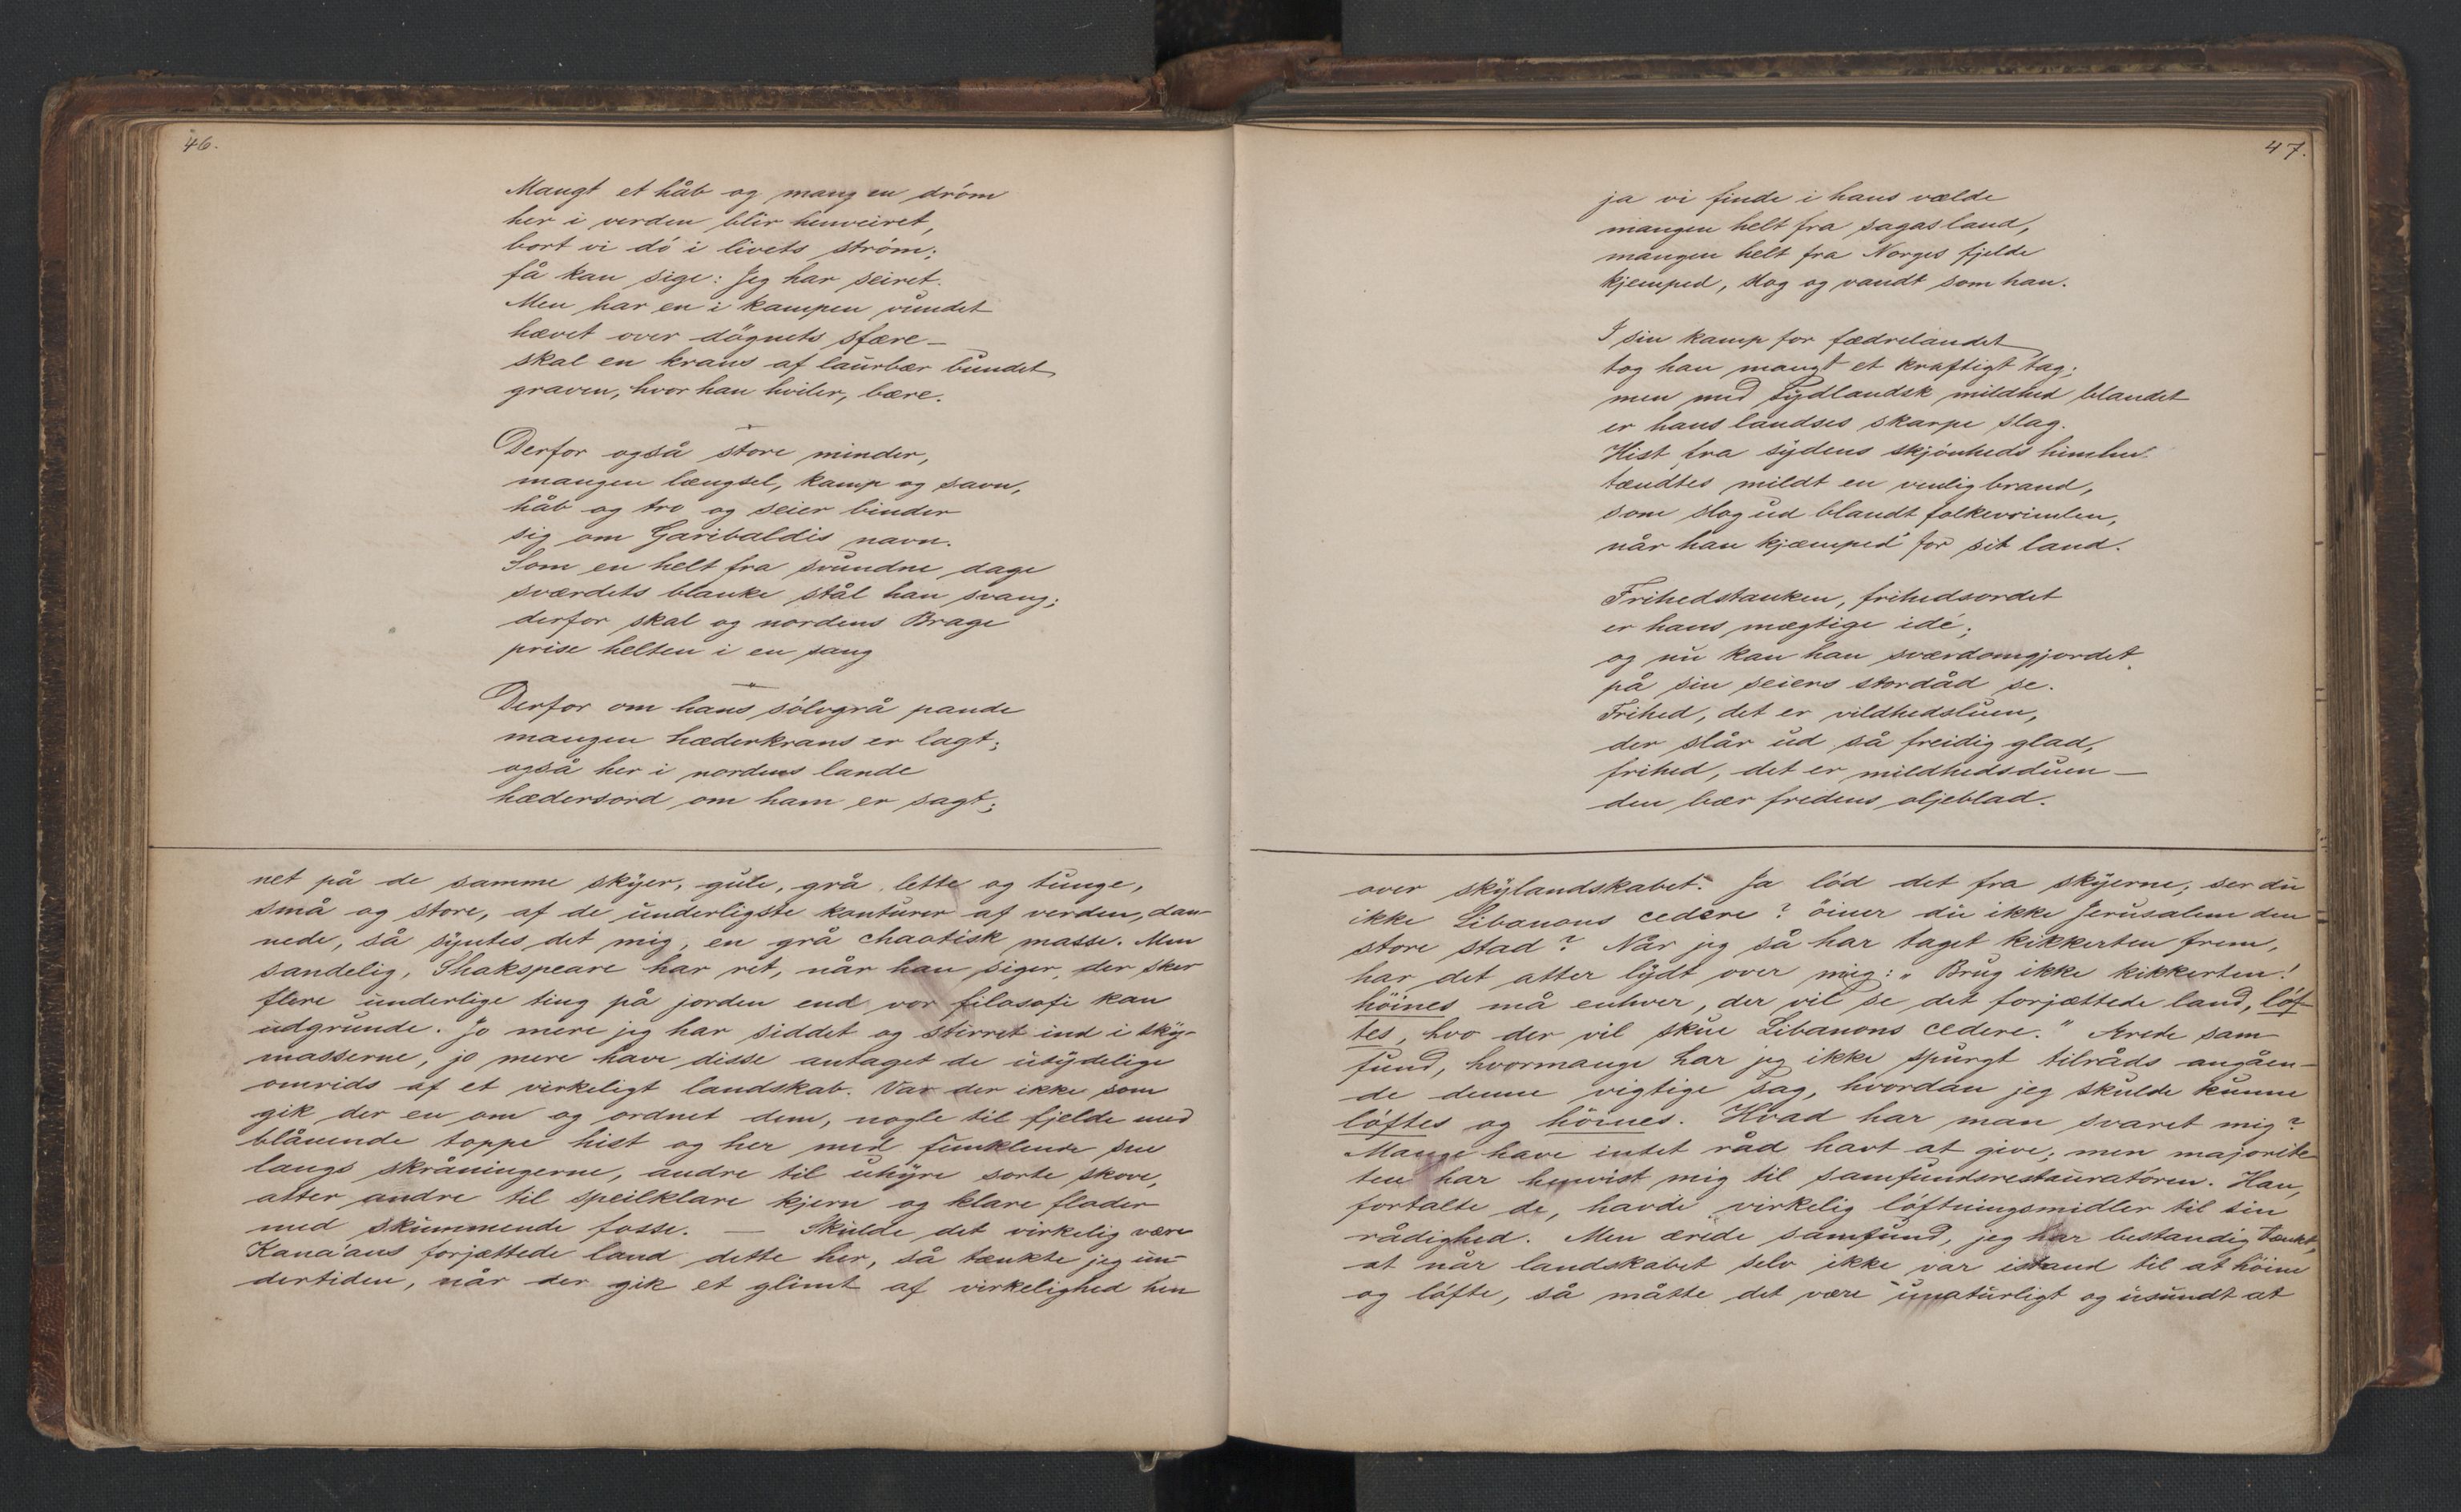 46.
Mangt et håb og mang en dröm
her i verden blir henveiret,
bort vi dö i livets ström;
få kan sige: Jeg har seiret.
Men har en i kampen vundet
hævet over dögnets sfære –
skal en krans af laurbær bundet
graven, hvor han hviler, bære.
Derfor også store minder,
mangen længsel, kamp og savn,
håb og tro og seier binder
sig om Garibaldis navn.
Som en helt fra svundne dage
sværdets blanke stål han svang;
derfor skal og nordens Brage
prise helten i en sang
Derfor om hans sölvgrå pande
mangen hæderkrans er lagt;
også her i nordens lande
hædersord om ham er sagt;
net på de samme skyer, gule, grå, lette og tunge,
små og store, af de underligste konturer af verden, dan-
nede, så syntes det mig, en grå chaotisk masse. Men
sandelig, Shakspeare har ret, når han siger, der sker
flere underlige ting på jorden end vor filosofi kan
udgrunde. Jo mere jeg har siddet og stirret ind i sky-
masserne, jo mere have disse antaget de utydelige
omrids af et virkeligt landskab. Var der ikke som
gik der en om og ordnet dem, nogle til fjelde med
blånende toppe hist og her med funklende sne
langs skråningerne, andre til uhyre sorte skove,
atter andre til speilklare kjern og klare floder
med skummende fosse. — Skulde det virkelig være
Kana'ans forjættede land dette her, så tænkte jeg un-
dertiden, når der gik et glimt af virkelighed hen
47.
ja vi finde i hans vælde
mangen helt fra sagasland,
mangen helt fra Norges fjelde
kjemped, slog og vandt som han.
I sin kamp for fædrelandet
tog han mangt et kraftigt tag;
men med sydlandsk mildhed blandet
er hans landses skarpe slag.
Hist fra sydens skjönheds himlen
tændtes mildt en venlig brand,
som slog ud blandt folkevrimlen,
når han kjæmped' for sit land.
Frihedstanken, frihedsordet
er hans mægtige idé;
og nu kan han sværdomgjordet
på sin seiers stordåd se.
Frihed, det er vildhedsluen,
der slår ud så freidig glad,
frihed, det er mildhedsduen –
den bær fredens oljeblad.
over skylandskabet. Ja löd det fra skyerne, ser du
ikke Libanons cedere? öiner du ikke Jerusalem den
store stad? Når jeg så har taget kikkerten frem,
har det atter lydt over mig: „Brug ikke kikkerten!
höines må enhver, der vil se det forjættede land, löf-
tes, hvo der vil skue Libanons cedere." Ærede sam-
fund, hvormange har jeg ikke spurgt tilråds angåen-
de denne vigtige sag, hvordan jeg skulde kunne
löftes og höines. Hvad har man svaret mig?
Mange have intet råd havt at give; men majorite-
ten har henvist mig til samfundsrestauratören. Han,
fortalte de, havde virkelig löftningsmidler til sin
rådighed. Men ærede samfund, jeg har bestandig tænkt,
at når landskabet selv ikke var istand til at höine
og löfte, så måtte det være unaturligt og usundt at